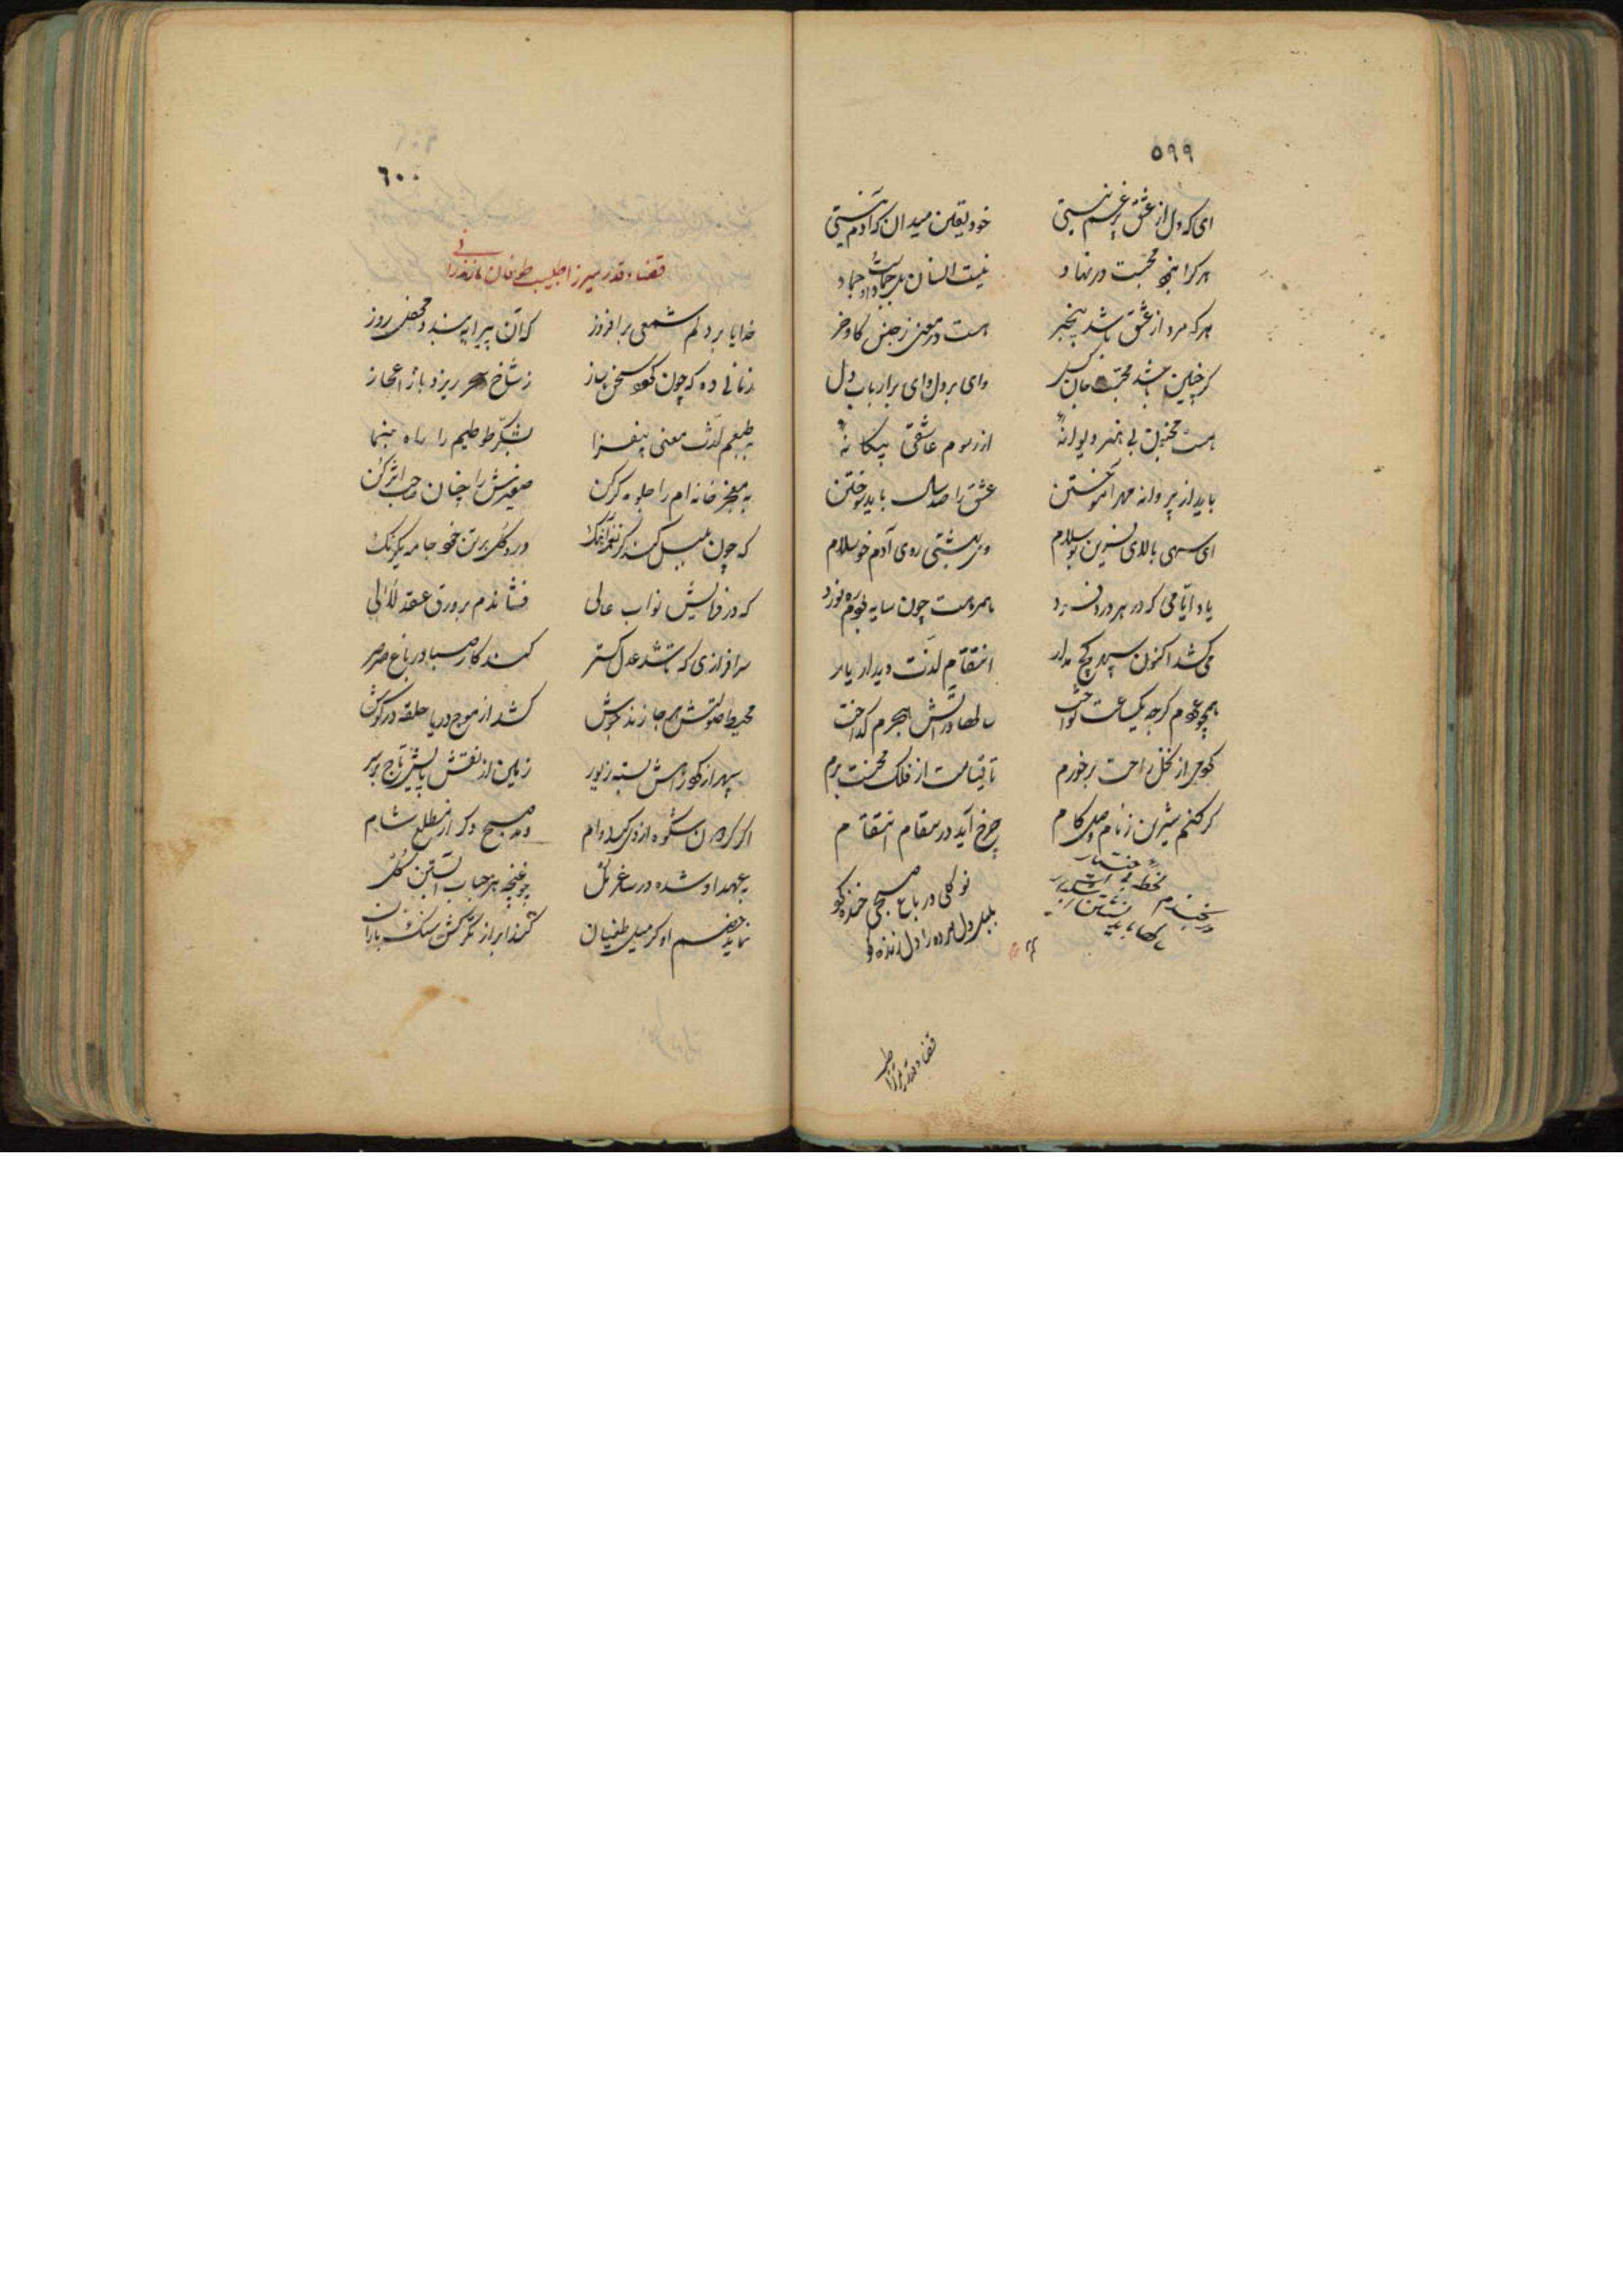 ۵۹۹
ای که دل از عشق پر غم نیستی خود یقین میدان که آدم نیستی
هر کرا نبود محبت در نهاد نیست انسان بل جمادست او جماد
هر که مرد از عشق باشد بیخبر هست در معنی ز جنس کاو و خر
کر چنین باشد محبت جان کسل وای بر دل وای بر ارباب دل
هست مجنون بی هنر دیوانه از رسوم عاشقی بیکانه
باید از پروانه مهر آموختن عشق را صد سال باید سوختن
ای سهی بالای نسرین بو سلام وی بهشتی روی آدم خو سلام
یاد ایامی که در هر درد فرد با همرهت چون سایه بودم ره نورد
می کشد اکنون سپهر کج مدار انتقام لذت دیدار یار
همچو عودم کرچه یکساعت نواخت سالها در آتش هجرم کداخت
کر جوی از نخل راحت برخورم تا قیامت از فلک محنت برم
کر کنم شیرین ز نام وصل کام چرخ آید در مقام انتقام
نو کلی در باغ صبحی خنده کو
بلبل دل مرده را دل زنده کو
قضا و قدر میرزا طیب
٦٠٠
قضا و قدر میرزا طیب طوفان مازندرانی
خدایا بر دلم شمعی برافروز که آن پیرایه بندد محفل روز
زبانی ده که چون کردد سخن ساز ز شاخ سحر ریزد بار اعجاز
به طبعم لذت معنی بیفزا بشکر طوطیم را راه بنما
به معجز خانه ام را جلوه کر کن صفیرش را چنان صاحب اثر کن
که چون بلبل کند کر نغمه آهنک درد کل بر تن خود جامه یکرنک
که در فرمایش نواب عالی فشاندم بر ورق عقد لآلی
سرافرازی که باشد عدل کستر کند کار صبا در باغ صرصر
محیط صولتش هر جا زند جوش کشد از موج دریا حلقه در کوش
سپهر از کوهرش بسته زیور زمین از نقش پایش تاج بر سر
اکر کردون شکوه از وی کند وام دمد صبح دکر از مطلع شام
بعهد او شده در ساغر مل چو غنچه هر حباب آبستن کل
نماید خصم او کر میل طغیان کند ابر از تکرکش سنک باران